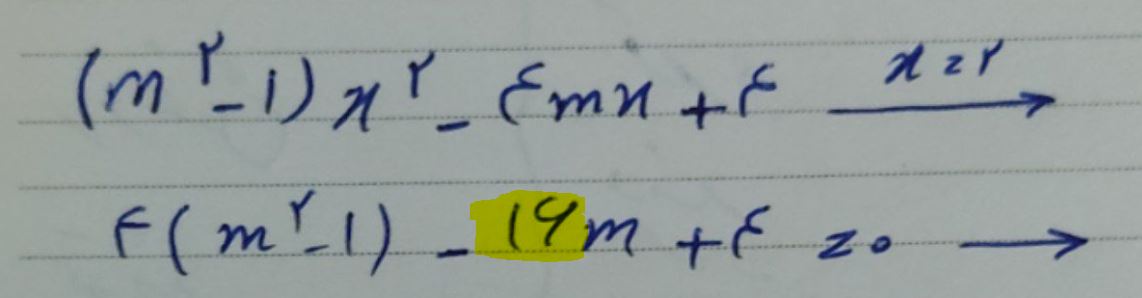 (m^۲ - ۱) x^۲ - ۴mx + ۴ x = ۲ →
۴(m^۲ - ۱) - ۱۶m + ۴ = ۰ →